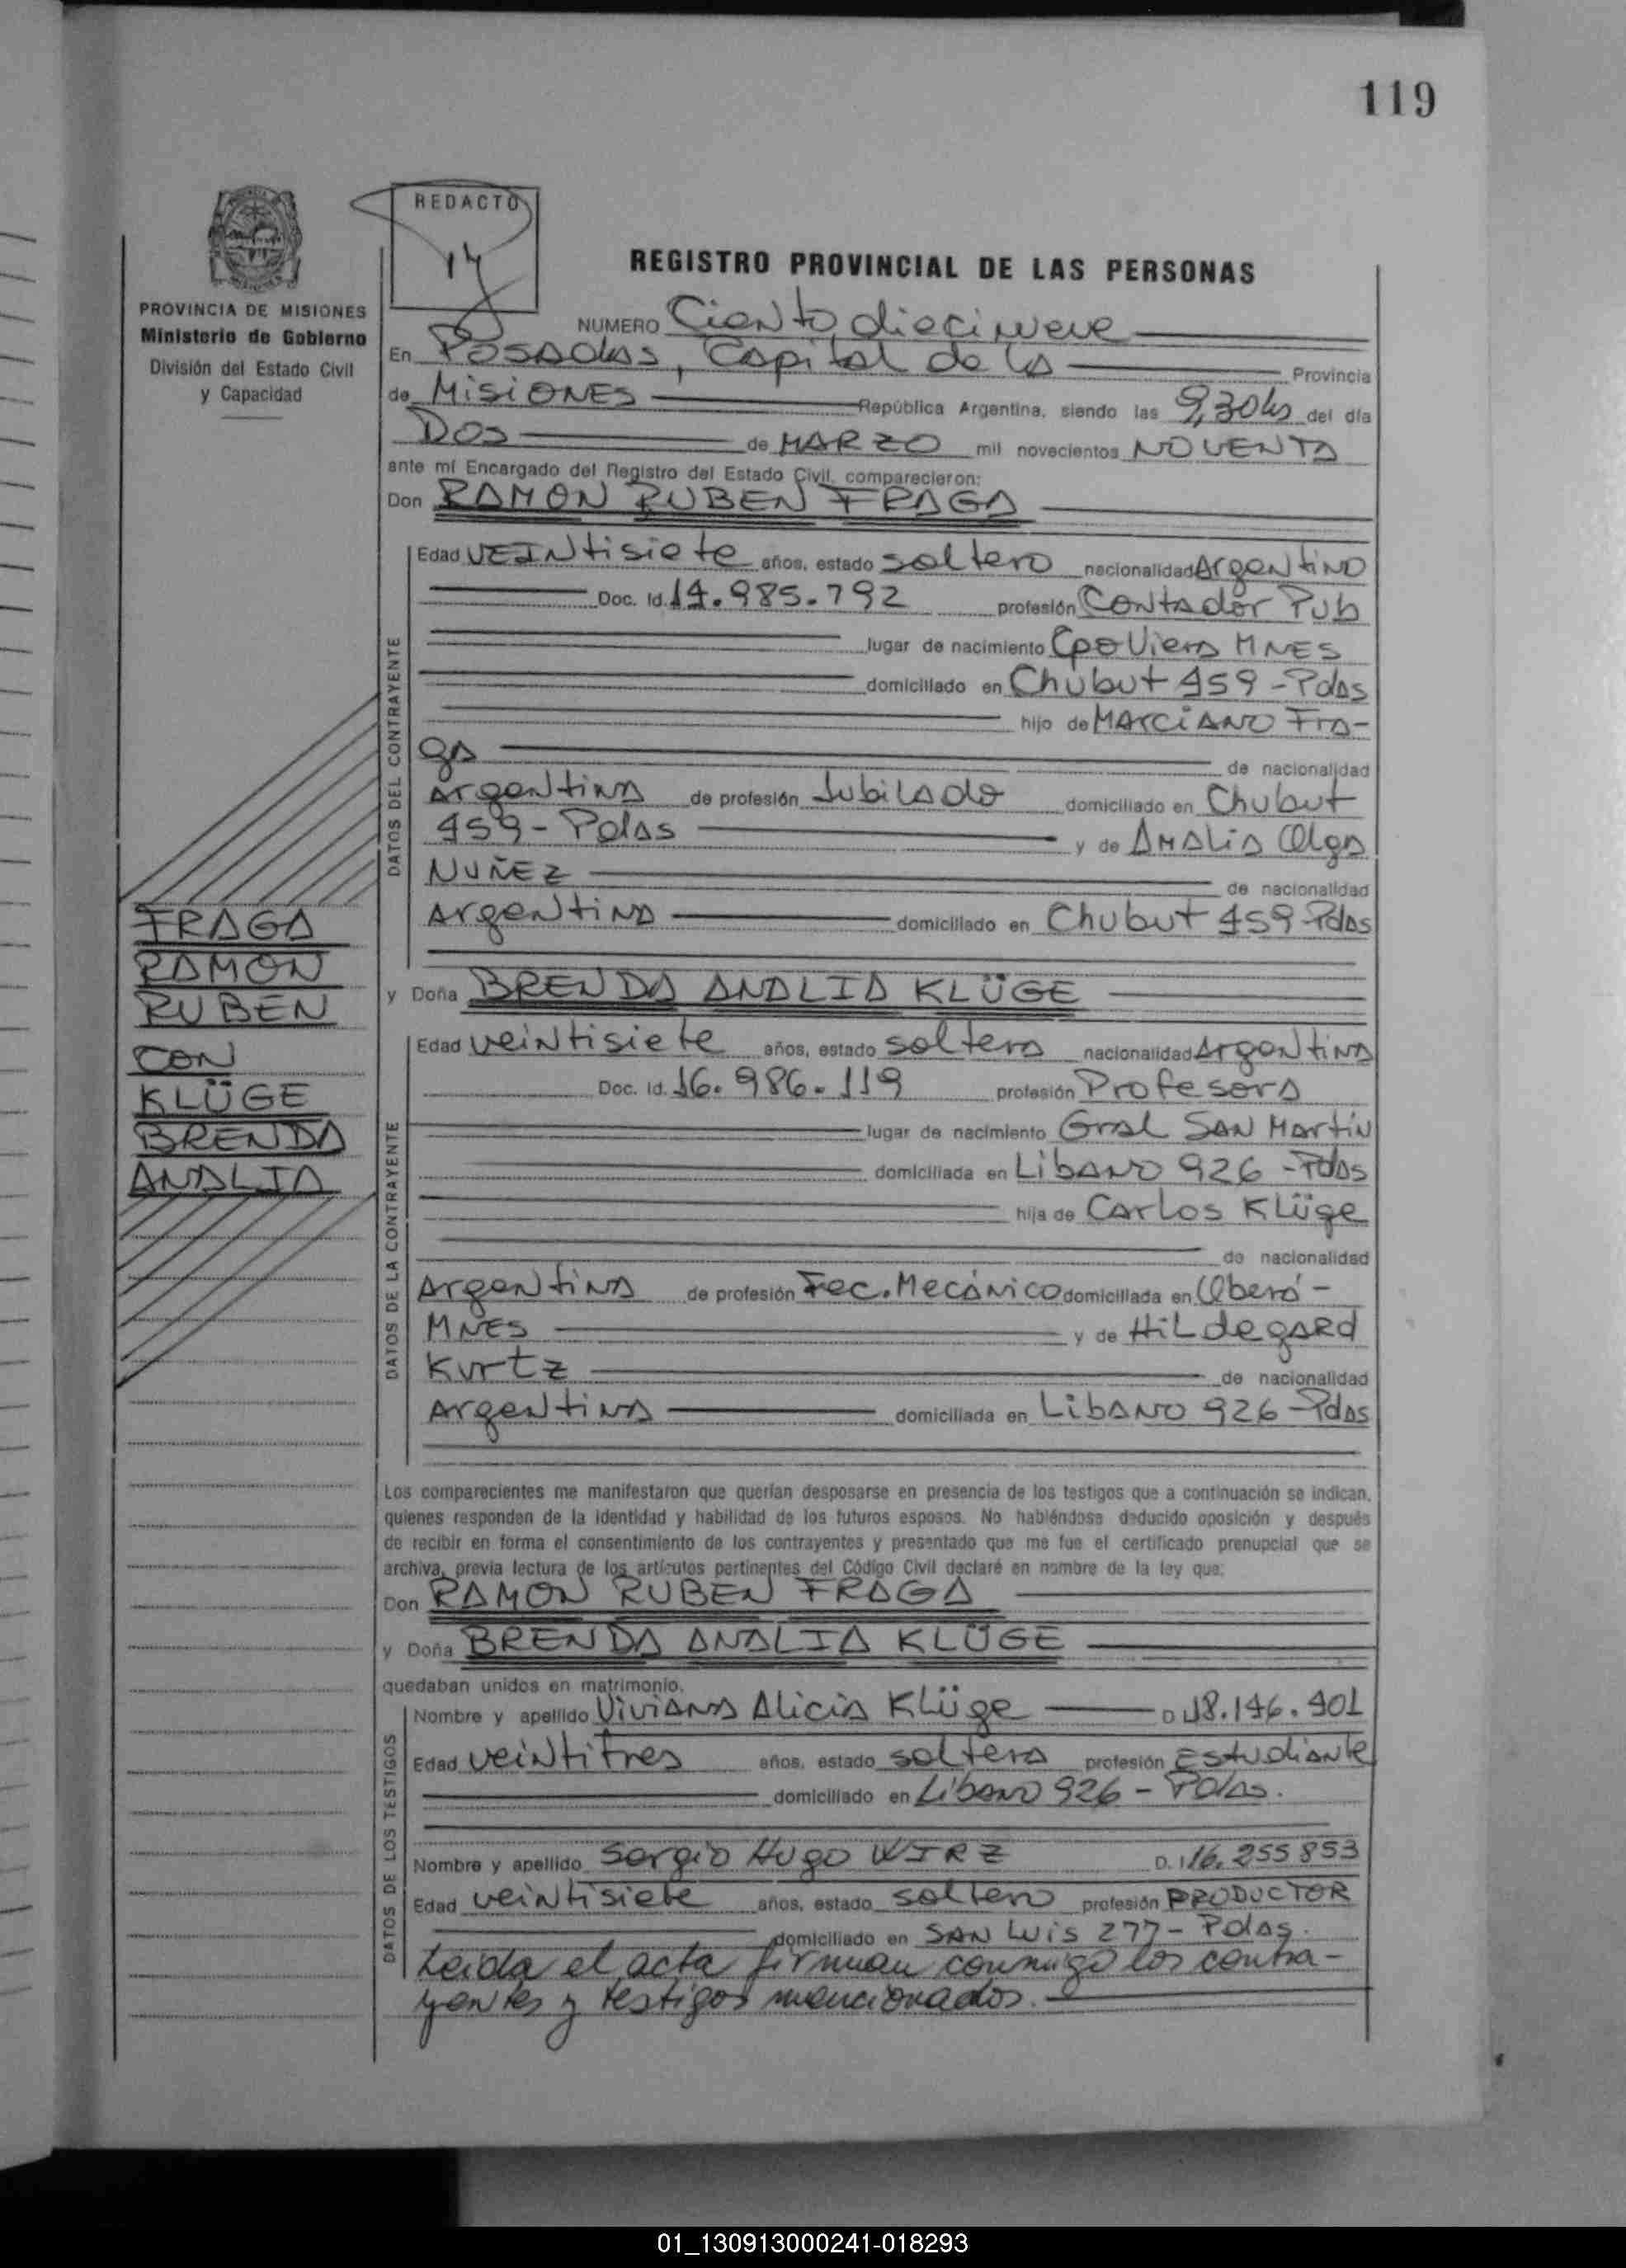 119
REDACTO
14
REGISTRO PROVINCIAL DE LAS PERSONAS
PROVINCIA DE MISIONES
Ministerio de Gobierno
División del Estado Civil
y Capacidad
NUMERO Ciento diecinueve
En Posadas, Capital de la Provincia
de Misiones República Argentina, siendo las 9,30hs del día
Dos de MARZO mil novecientos NOVENTA
ante mí Encargado del Registro del Estado Civil, comparecieron:
Don RAMON RUBEN FRAGA
DATOS DEL CONTRAYENTE
Edad VEINtisiete años, estado soltero nacionalidad Argentino
Doc. Id. 14.985.792 profesión Contador Pub
lugar de nacimiento Cpo Viera MNES
domiciliado en Chubut 459 - Pdas
hijo de MArciANO Fra-
ga de nacionalidad
Argentina de profesión Jubilado domiciliado en Chubut
459 - Pdas y de AMALIA Olga
NUÑEZ de nacionalidad
Argentina domiciliado en Chubut 459 Pdas
FRAGA
RAMON
RUBEN
CON
KLÜGE
BRENDA
ANALIA
y Doña BRENDA ANALIA KLÜGE
DATOS DE LA CONTRAYENTE
Edad veintisiete años, estado soltera nacionalidad Argentina
Doc. Id. 16.986.119 profesión Profesora
lugar de nacimiento Gral SAN Martín
domiciliada en LibANO 926 - Pdas
hija de Carlos Klüge
de nacionalidad
Argentina de profesión Tec. Mecánico domiciliada en Oberá -
MNES y de HiLdegard
Kurtz de nacionalidad
Argentina domiciliada en LibANO 926 - Pdas
Los comparecientes me manifestaron que querían desposarse en presencia de los testigos que a continuación se indican,
quienes responden de la identidad y habilidad de los futuros esposos. No habiéndose deducido oposición y después
de recibir en forma el consentimiento de los contrayentes y presentado que me fue el certificado prenupcial que se
archiva, previa lectura de los artículos pertinentes del Código Civil declaré en nombre de la ley que:
Don RAMON RUBEN FRAGA
y Doña BRENDA ANALIA KLÜGE
quedaban unidos en matrimonio.
DATOS DE LOS TESTIGOS
Nombre y apellido Viviana Alicia Klüge D 18.146.401
Edad veintitres años, estado soltera profesión Estudiante
domiciliado en Libano 926 - Pdas.
Nombre y apellido Sergio Hugo WIRZ D. I 16.255853
Edad veintisiete años, estado soltero profesión PRODUCTOR
domiciliado en SAN Luis 277 - Pdas.
Leida el acta firman conmigo los contra-
yentes y testigos mencionados.
01_130913000241-018293